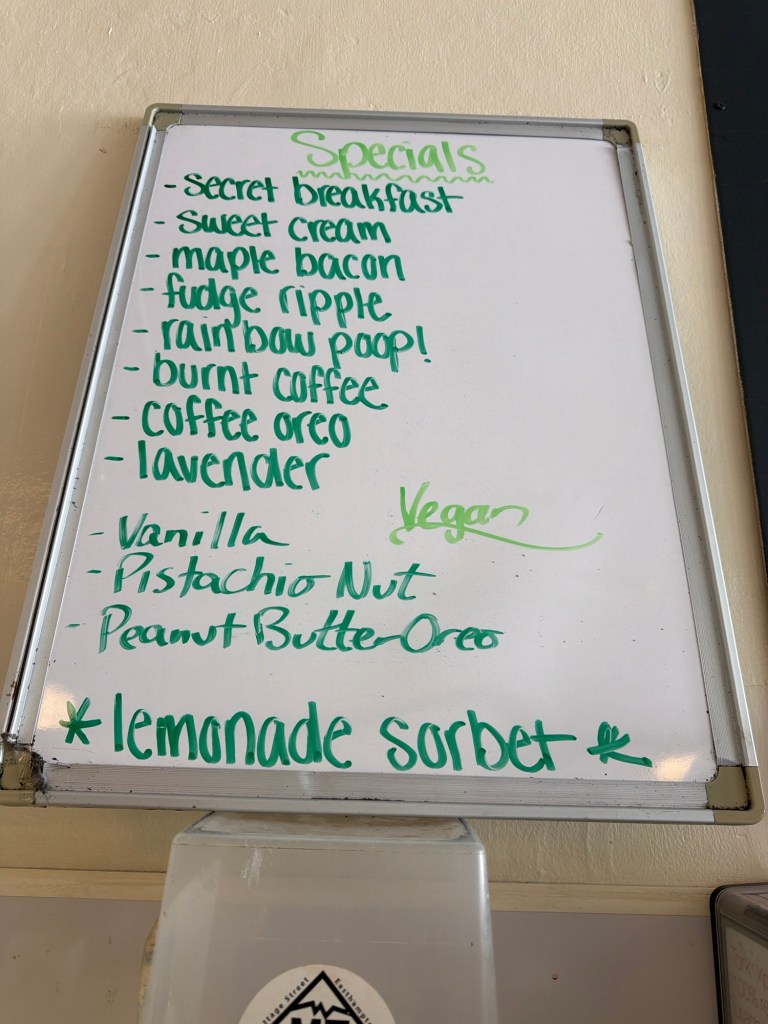 Specials
- secret breakfast
- sweet cream
- maple bacon
- fudge ripple
- rainbow poop!
- burnt coffee
- coffee oreo
- lavender
Vegan
- Vanilla
- Pistachio Nut
- Peanut Butter Oreo
* lemonade sorbet *